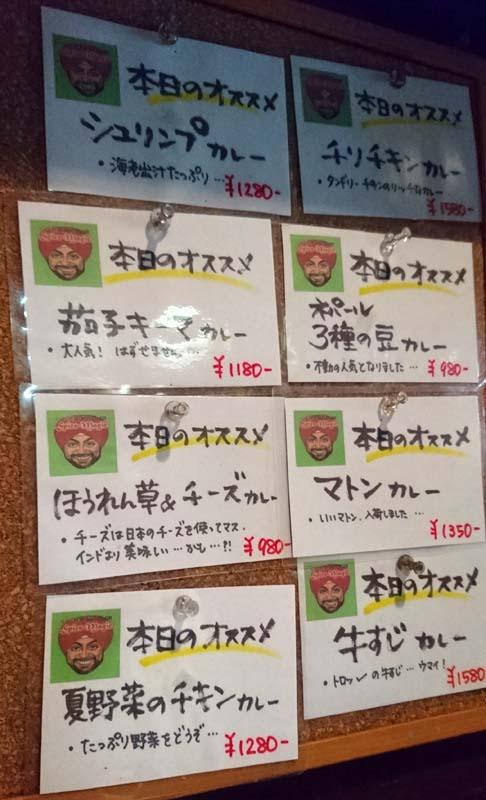 本日のオススメ
シュリンプカレー
・海老出汁たっぷり…
¥1280-
本日のオススメ
チリチキンカレー
・タンドリーチキンのリッチなカレー
¥1580-
Spice Magic
本日のオススメ
茄子キーマカレー
・大人気! はずせません
¥1180-
Spice Magic
本日のオススメ
ネパール
3種の豆カレー
・不動の人気となりました…
¥980-
Spice Magic
本日のオススメ
ほうれん草&チーズカレー
・チーズは日本のチーズを使ってマス.
インドより美味しい…かも…?!
¥980-
Spice Magic
本日のオススメ
マトンカレー
・いいマトン、入荷しました…
¥1350-
Spice Magic
本日のオススメ
夏野菜のチキンカレー
・たっぷり野菜をどうぞ…
¥1280-
Spice Magic
本日のオススメ
牛すじカレー
・トロットロの牛すじ…ウマイ!
¥1580